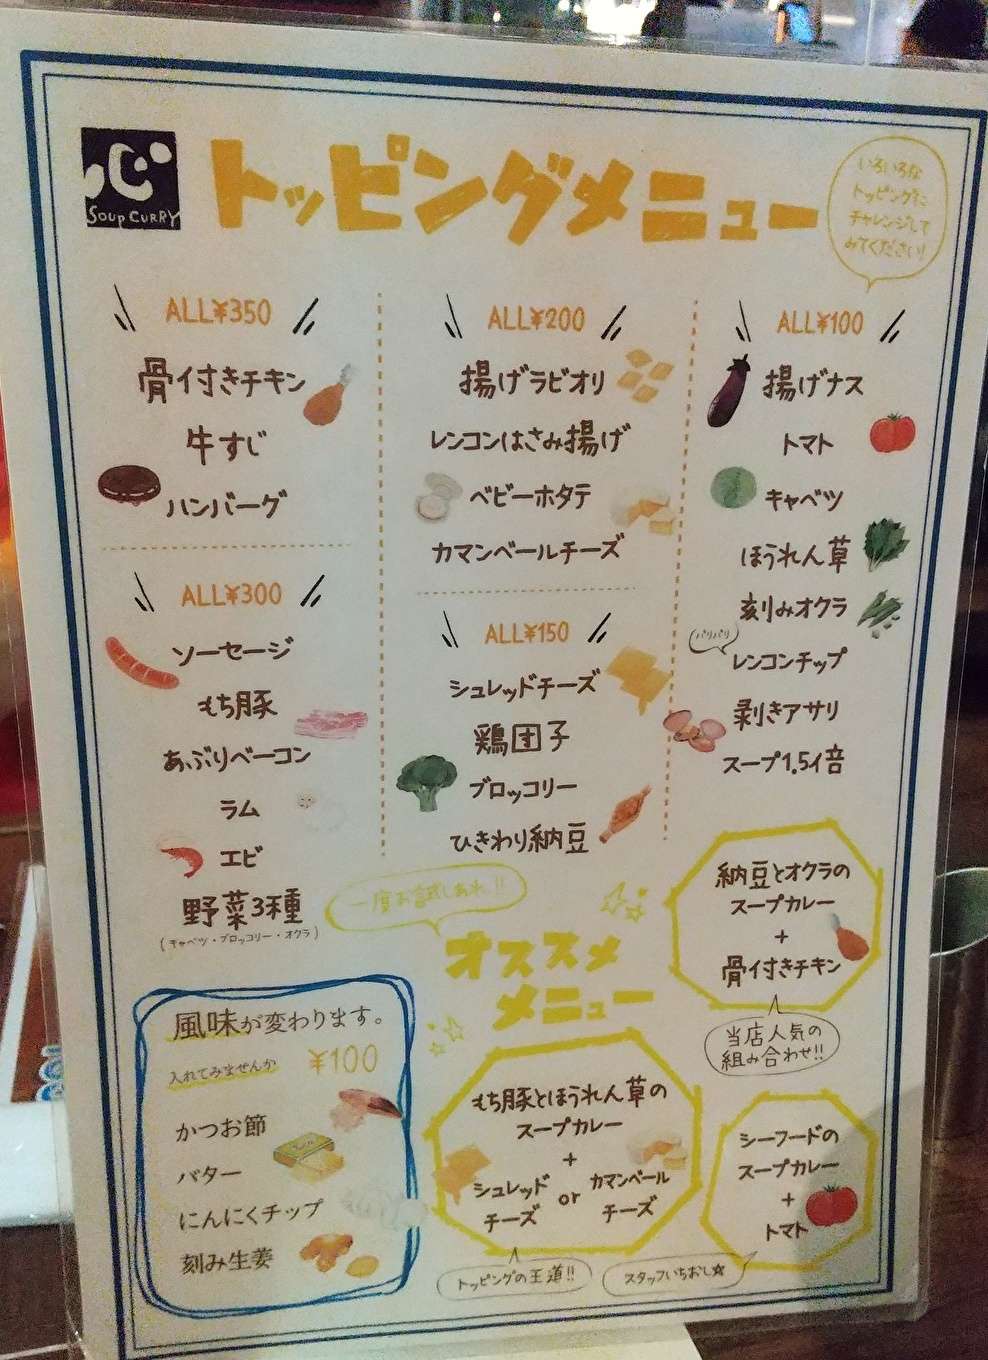 心
SOUP CURRY
トッピングメニュー
いろいろな
トッピングに
チャレンジして
みてください!
ALL¥350
骨付きチキン
牛すじ
ハンバーグ
ALL¥300
ソーセージ
もち豚
あぶりベーコン
ラム
エビ
野菜3種
(キャベツ・ブロッコリー・オクラ)
ALL¥200
揚げラビオリ
レンコンはさみ揚げ
ベビーホタテ
カマンベールチーズ
ALL¥150
シュレッドチーズ
鶏団子
ブロッコリー
ひきわり納豆
ALL¥100
揚げナス
トマト
キャベツ
ほうれん草
刻みオクラ
パリパリ
レンコンチップ
剥きアサリ
スープ1.5倍
風味が変わります。
入れてみませんか ¥100
かつお節
バター
にんにくチップ
刻み生姜
一度お試しあれ!!
オススメ
メニュー
納豆とオクラの
スープカレー
+
骨付きチキン
当店人気の
組み合わせ!!
もち豚とほうれん草の
スープカレー
+
シュレッド
チーズ
or
カマンベール
チーズ
トッピングの王道!!
シーフードの
スープカレー
+
トマト
スタッフいちおし☆